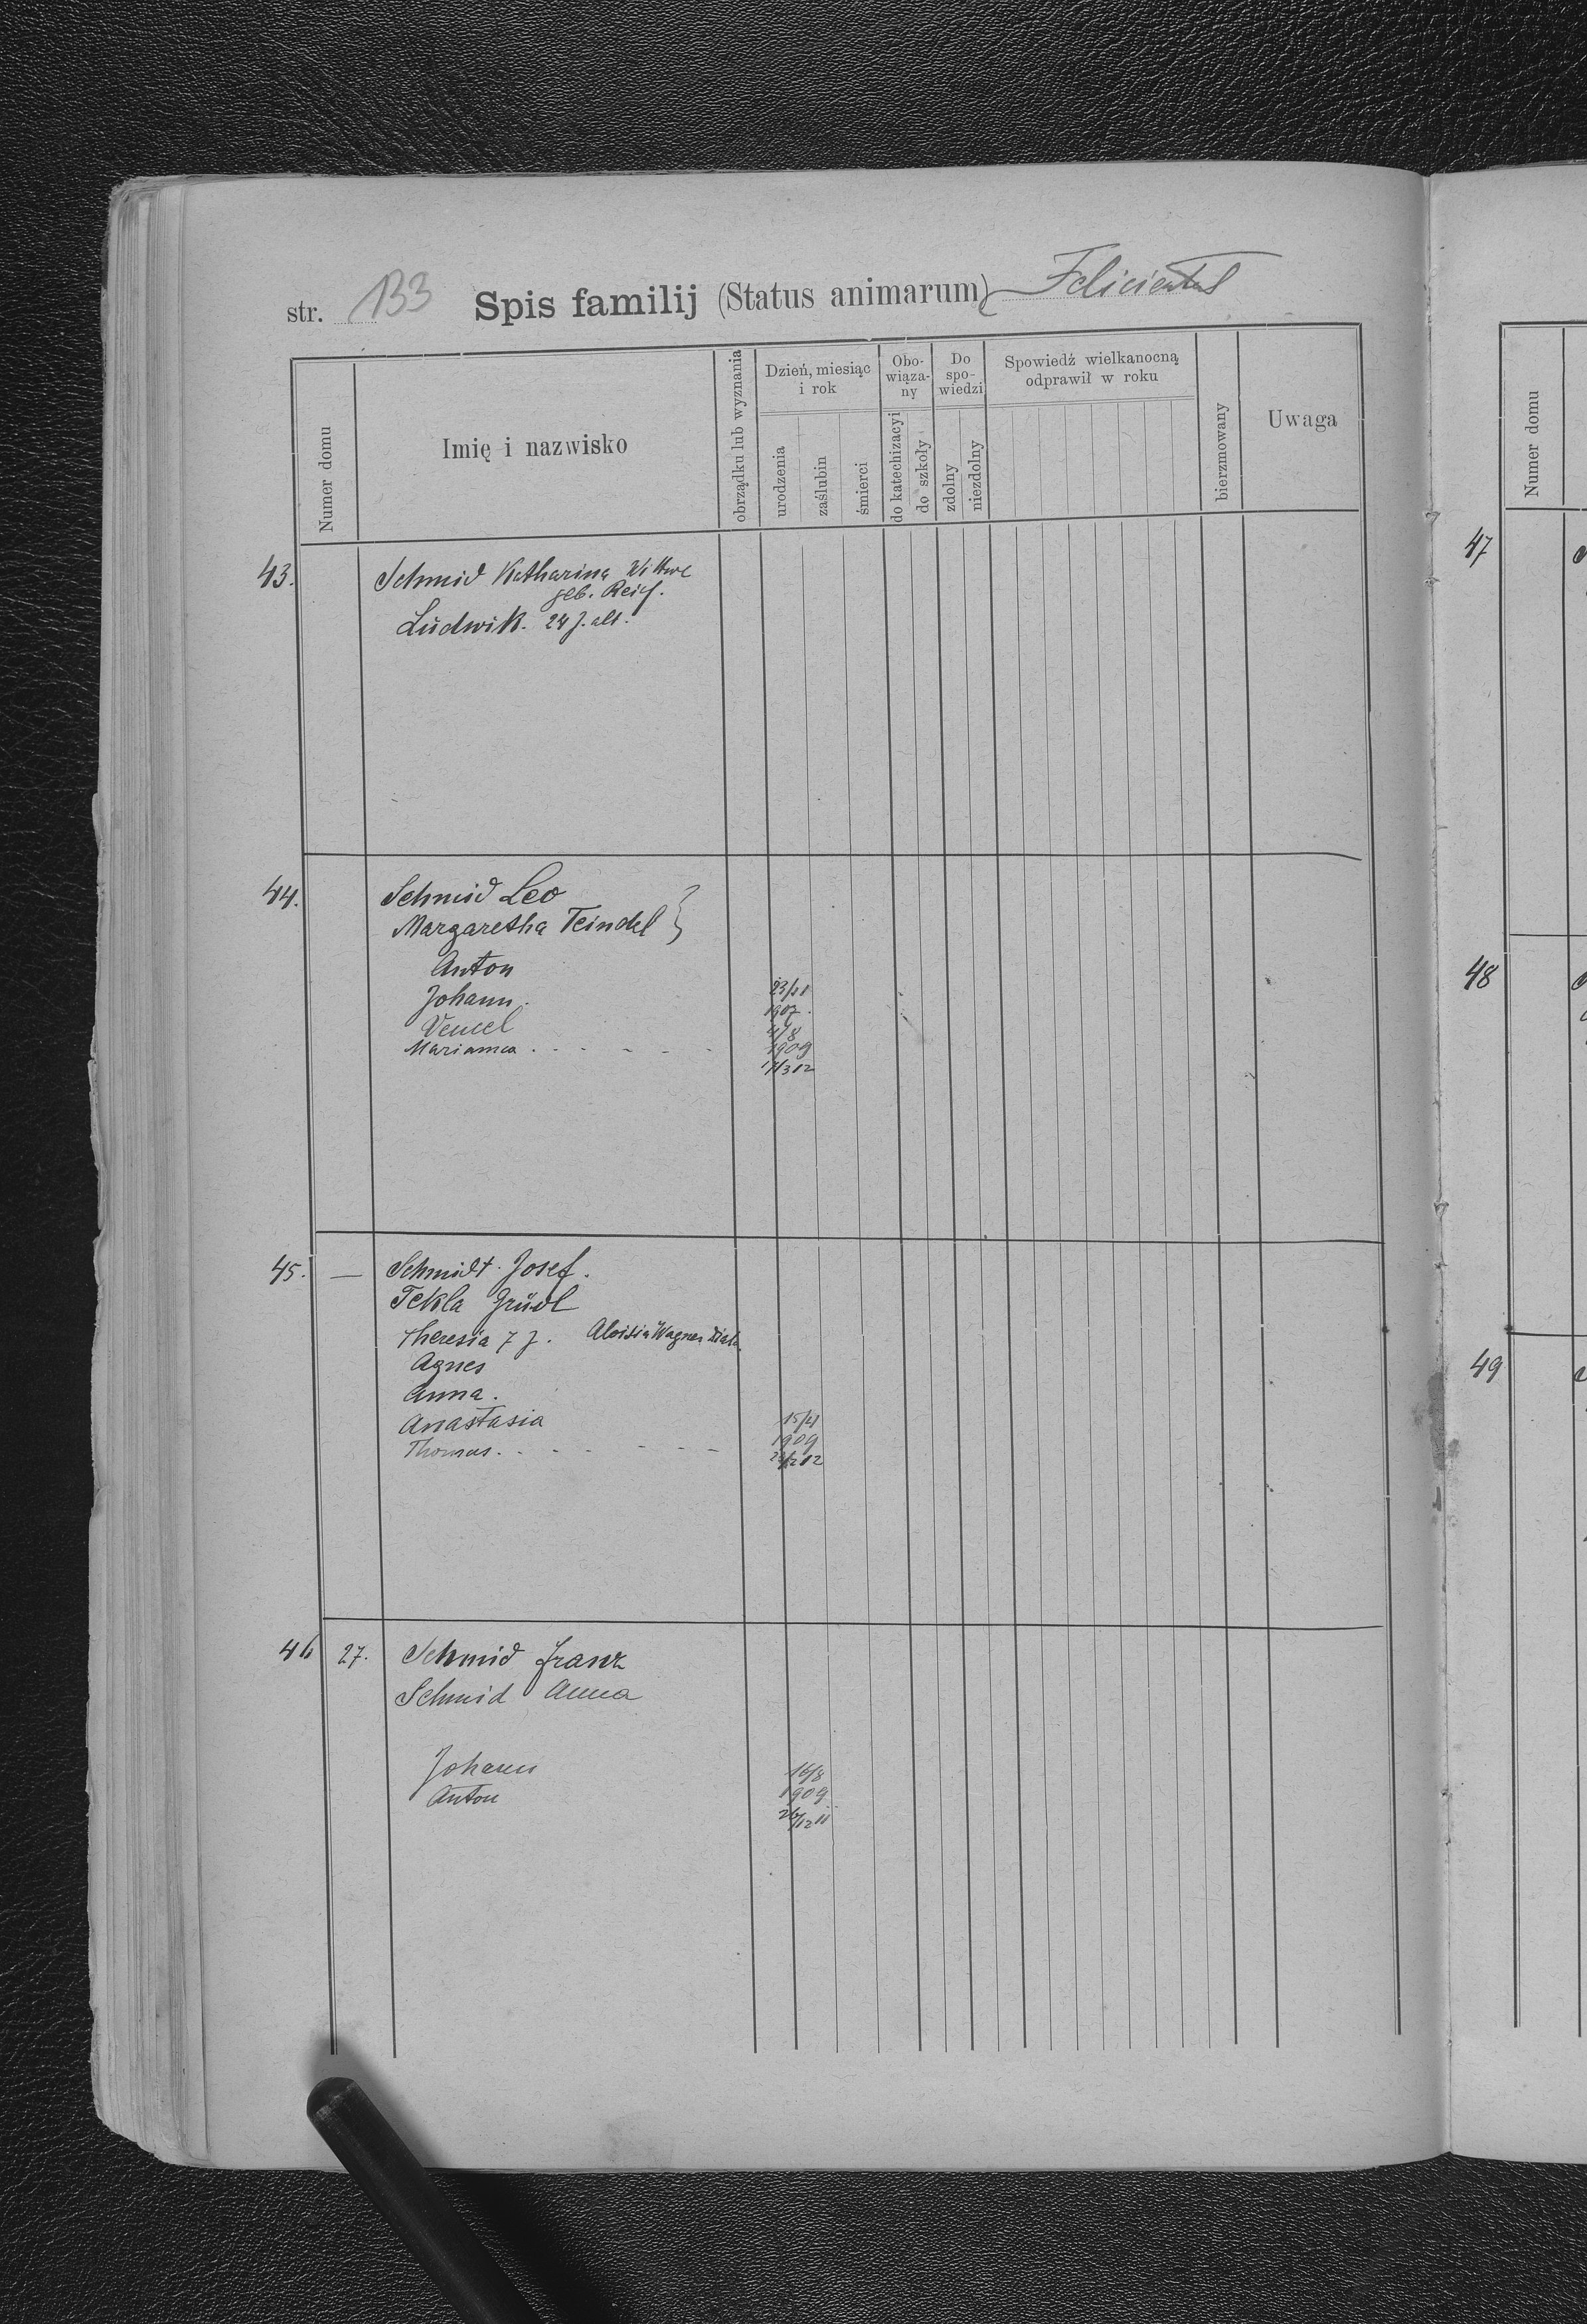 str. 133 Spis familij (Status animarum) Felicienthal
Numer domu
Imię i nazwisko
obrządku lub wyznania
Dzień, miesiąc i rok
urodzenia
zaślubin
śmierci
Obowiąza-ny
do katechizacyi
do szkoły
Do spo-wiedzi
zdolny
niezdolny
Spowiedź wielkanocną
odprawił w roku
bierzmowany
Uwaga
43. Schmid Katharina Wittwe
geb. Reich.
Ludwik. 24 J. alt.
44. Schmid Leo
Margaretha Teindel }
Anton
Johann. 23/11
1907.
Vencel 4/8
Marianna . . - - - - 1909
17/3 12
45. — Schmidt Josef.
Tekla Grüdl
Theresia 7 J. Aloisia Wagner
Agnes
Anna.
Anastasia 15/4
1909
Thomas. . . - - - -
12
46 27. Schmid Franz
Schmid Anna
Johann 16/8
Anton 1909
26/12 11
Numer domu
47
48
49